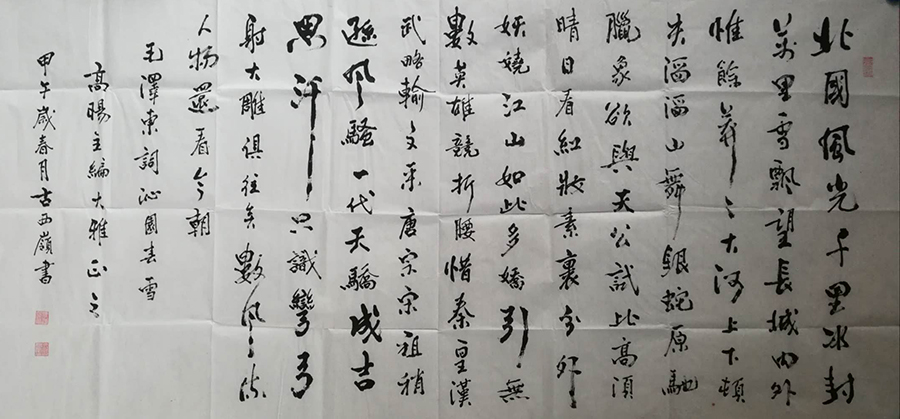 北國風光千里冰封
萬里雪飄望長城內外
惟餘莽々大河上下頓
失滔滔山舞銀蛇原馳
臘象欲與天公試比高須
晴日看紅妝素裹分外
妖嬈江山如此多嬌引無
數英雄競折腰惜秦皇漢
武略輸文采唐宗宋祖稍
遜風騷一代天驕成吉
思汗只識彎弓
射大雕俱往矣數風々流
人物還看今朝
毛澤東詞沁園春雪
高暘主編大雅正之
甲午歲春月古西嶺書